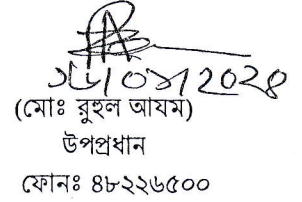 ১৬/০১/২০২৪
(মোঃ রুহুল আযম)
উপপ্রধান
ফোনঃ ৪৮২২৬৫০০